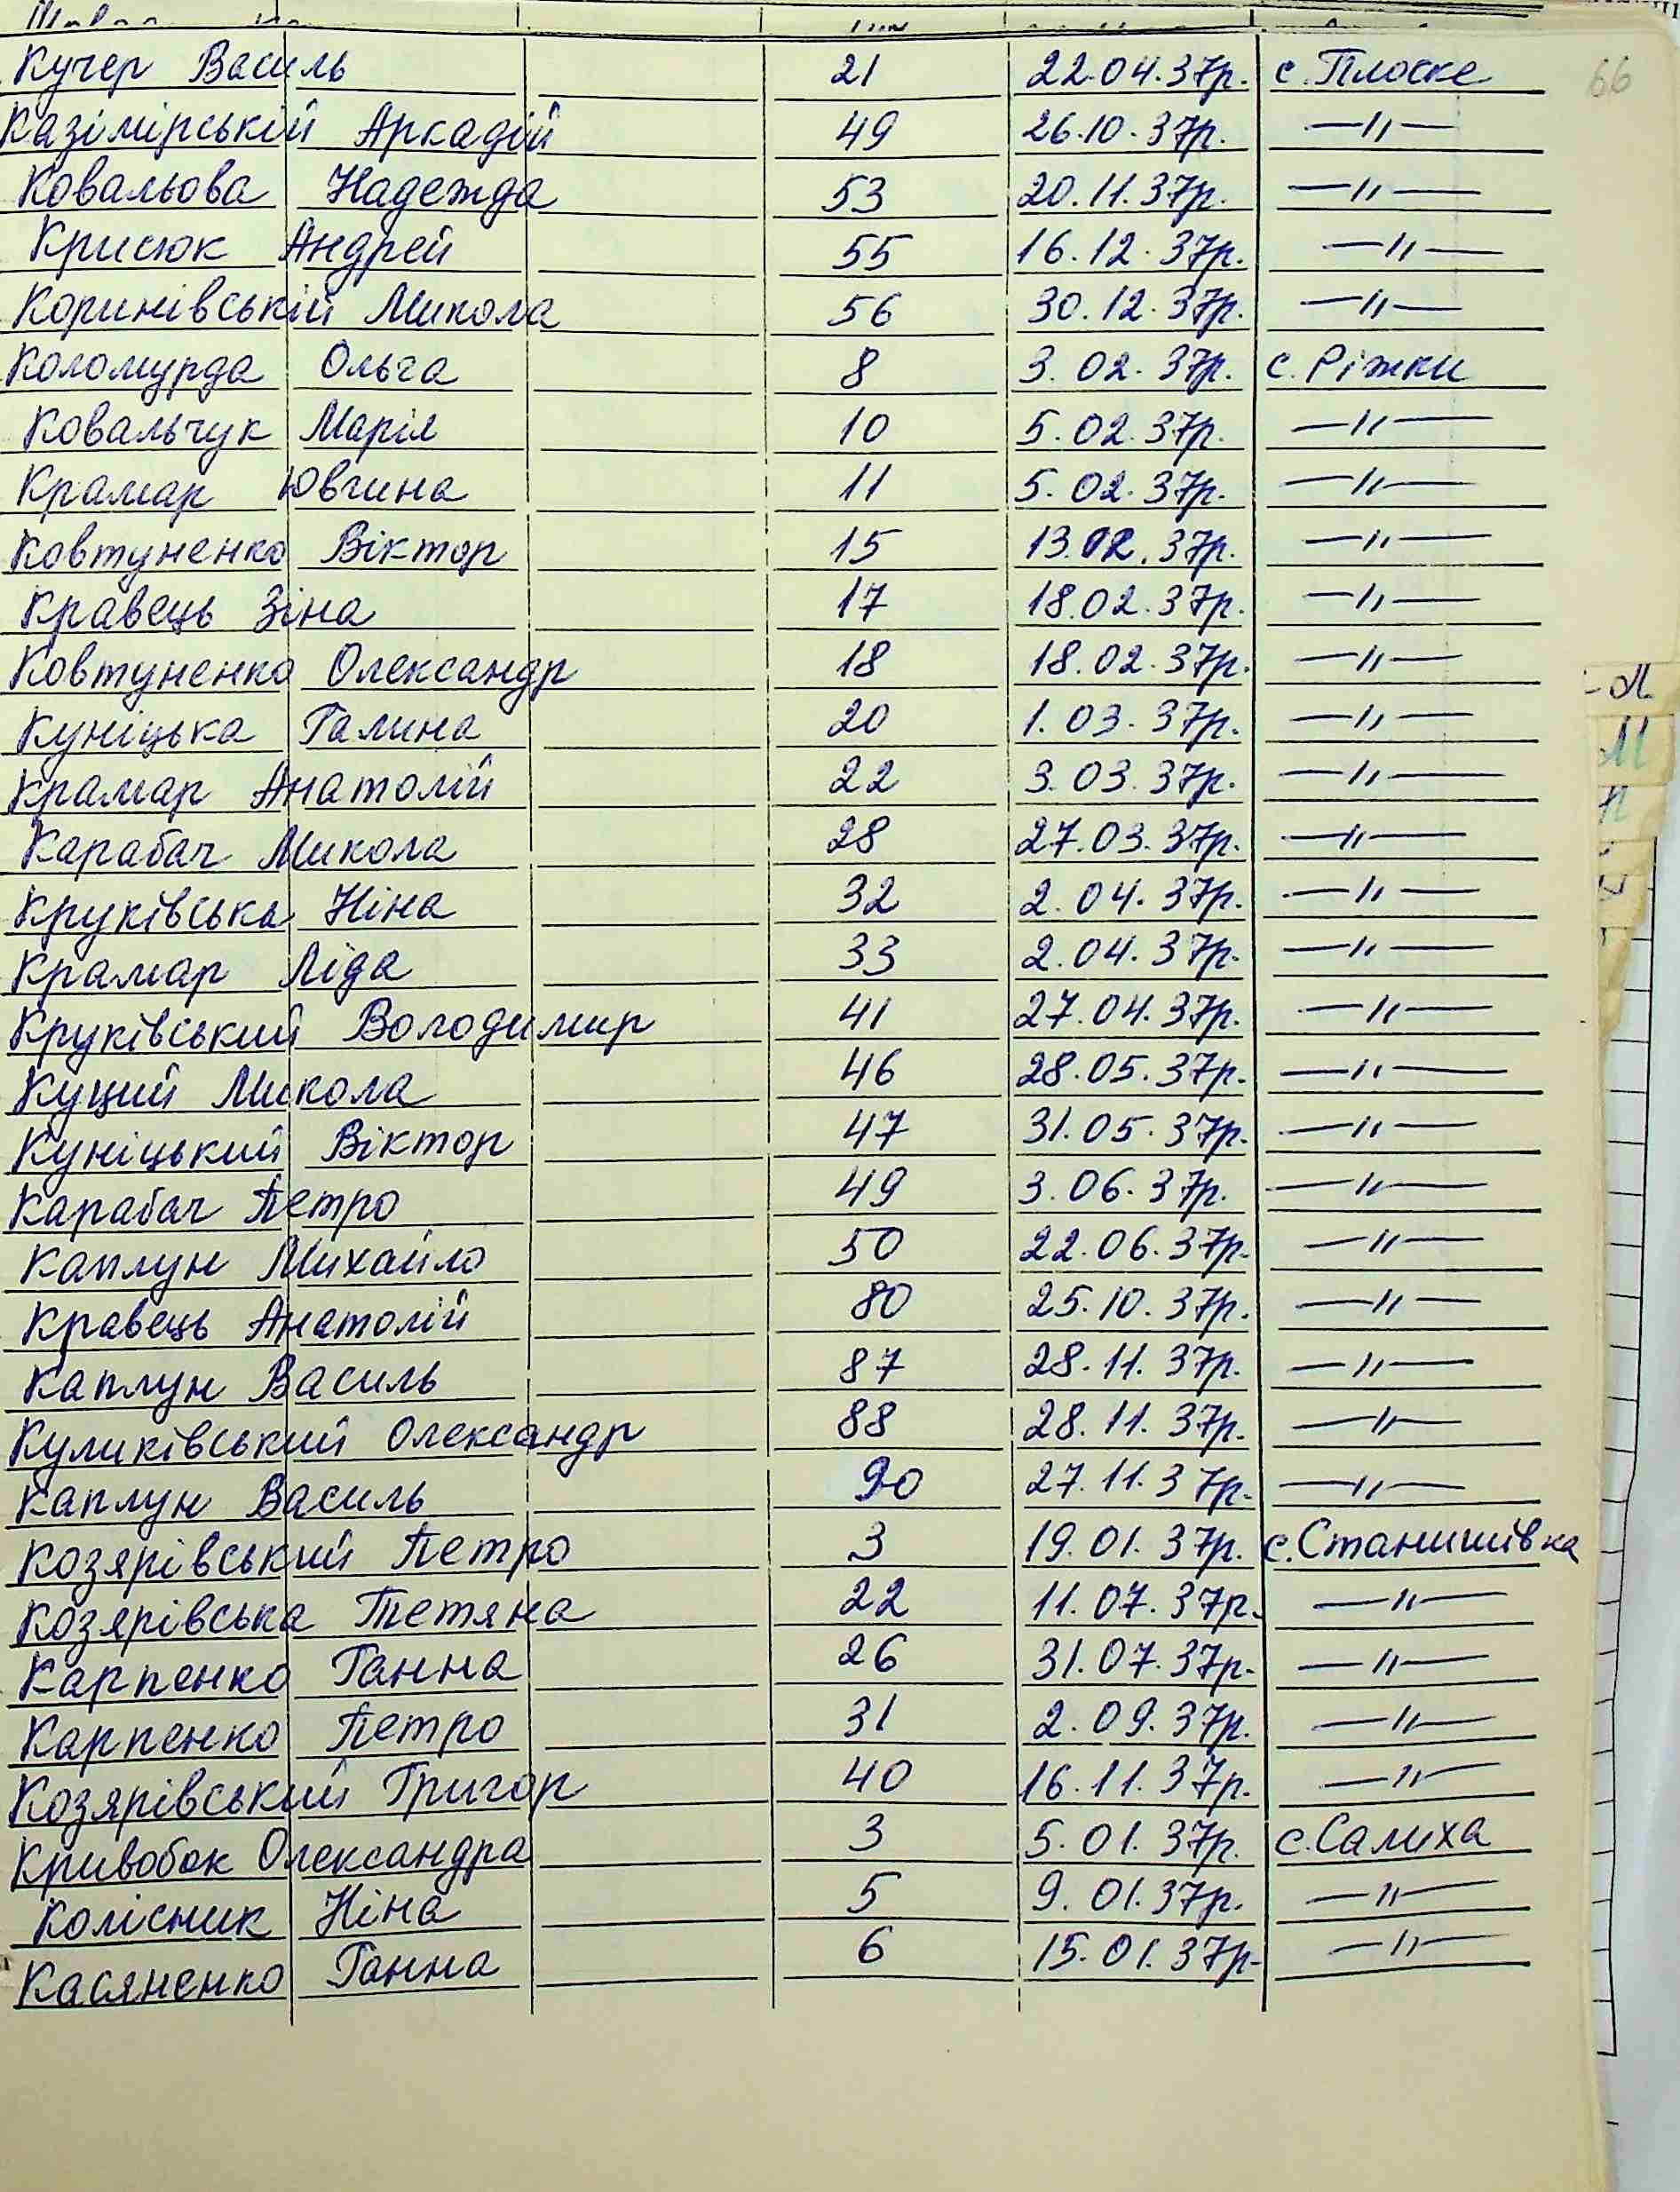 Кучер Василь 21 22.04.37р. с. Плоске 66
Казімірській Аркадій 49 26.10.37р. —〃—
Ковальова Надежда 53 20.11.37р. —〃—
Крисюк Андрей 55 16.12.37р. —〃—
Коринівській Микола 56 30.12.37р. —〃—
Коломурда Ольга 8 3.02.37р. с. Ріжки
Ковальчук Марія 10 5.02.37р. —〃—
Крамар Ювгина 11 5.02.37р. —〃—
Ковтуненко Віктор 15 13.02.37р. —〃—
Кравець Зіна 17 18.02.37р. —〃—
Ковтуненко Олександр 18 18.02.37р. —〃—
Куніцька Галина 20 1.03.37р. —〃—
Крамар Анатолій 22 3.03.37р. —〃—
Карабач Микола 28 27.03.37р. —〃—
Круківська Ніна 32 2.04.37р. —〃—
Крамар Ліда 33 2.04.37р. —〃—
Круківський Володимир 41 27.04.37р. —〃—
Куций Микола 46 28.05.37р. —〃—
Куніцький Віктор 47 31.05.37р. —〃—
Карабач Петро 49 3.06.37р. —〃—
Каплун Михайло 50 22.06.37р. —〃—
Кравець Анатолій 80 25.10.37р. —〃—
Каплун Василь 87 28.11.37р. —〃—
Куликівський Олександр 88 28.11.37р. —〃—
Каплун Василь 90 27.11.37р. —〃—
Козярівський Петро 3 19.01.37р. с. Станишівка
Козярівська Тетяна 22 11.07.37р. —〃—
Карпенко Ганна 26 31.07.37р. —〃—
Карпенко Петро 31 2.09.37р. —〃—
Козярівський Григор 40 16.11.37р. —〃—
Кривобок Олександра 3 5.01.37р. с. Салиха
Колісник Ніна 5 9.01.37р. —〃—
Касяненко Ганна 6 15.01.37р. —〃—